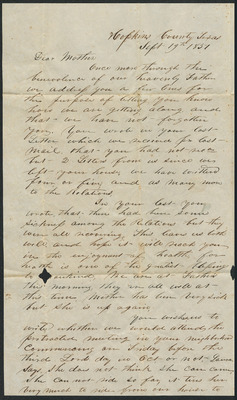 Hopkins County Texas
Sept 19th 1851
Dear Mother
Once more through the
benevolence of our heavenly Father
we address you a few lines for
the purpose of letting you know
how we are getting along and
that we have not forgotten
you. You wrote in your last
letter which we received
that you had not
but 2 letters from us since we
left your house, we have written
four or five and as many more
to the Relations
In your last you
wrote that there had been some
sickness among the Relations but they
were all recovering. This leaves us both
well, and hope it will reach you
in the enjoyment of health for
health is one of the greatest blessings
we are at Father's
this morning they are all well at
this time Mother has been very sick
but she is up again
Your wishes to
with whether we would attend the
protracted meeting in your neighborhood
Commencing on Friday before the
third Lords day in Oct or not
Says She does not think she can come,
She can not ride so far it tires her
very much to ride from our house to